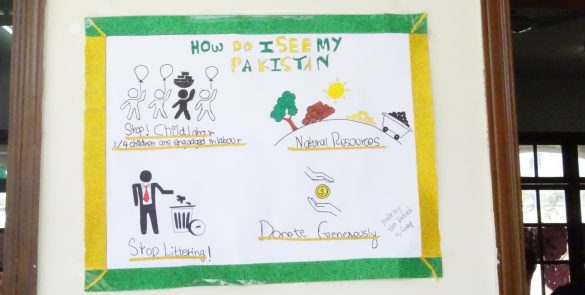 HOW DO I SEE MY
PAKISTAN
Stop! Child labour
1/4 children are engadged in labour
Natural Resources
Stop Littering!
Donate Generously
Made by